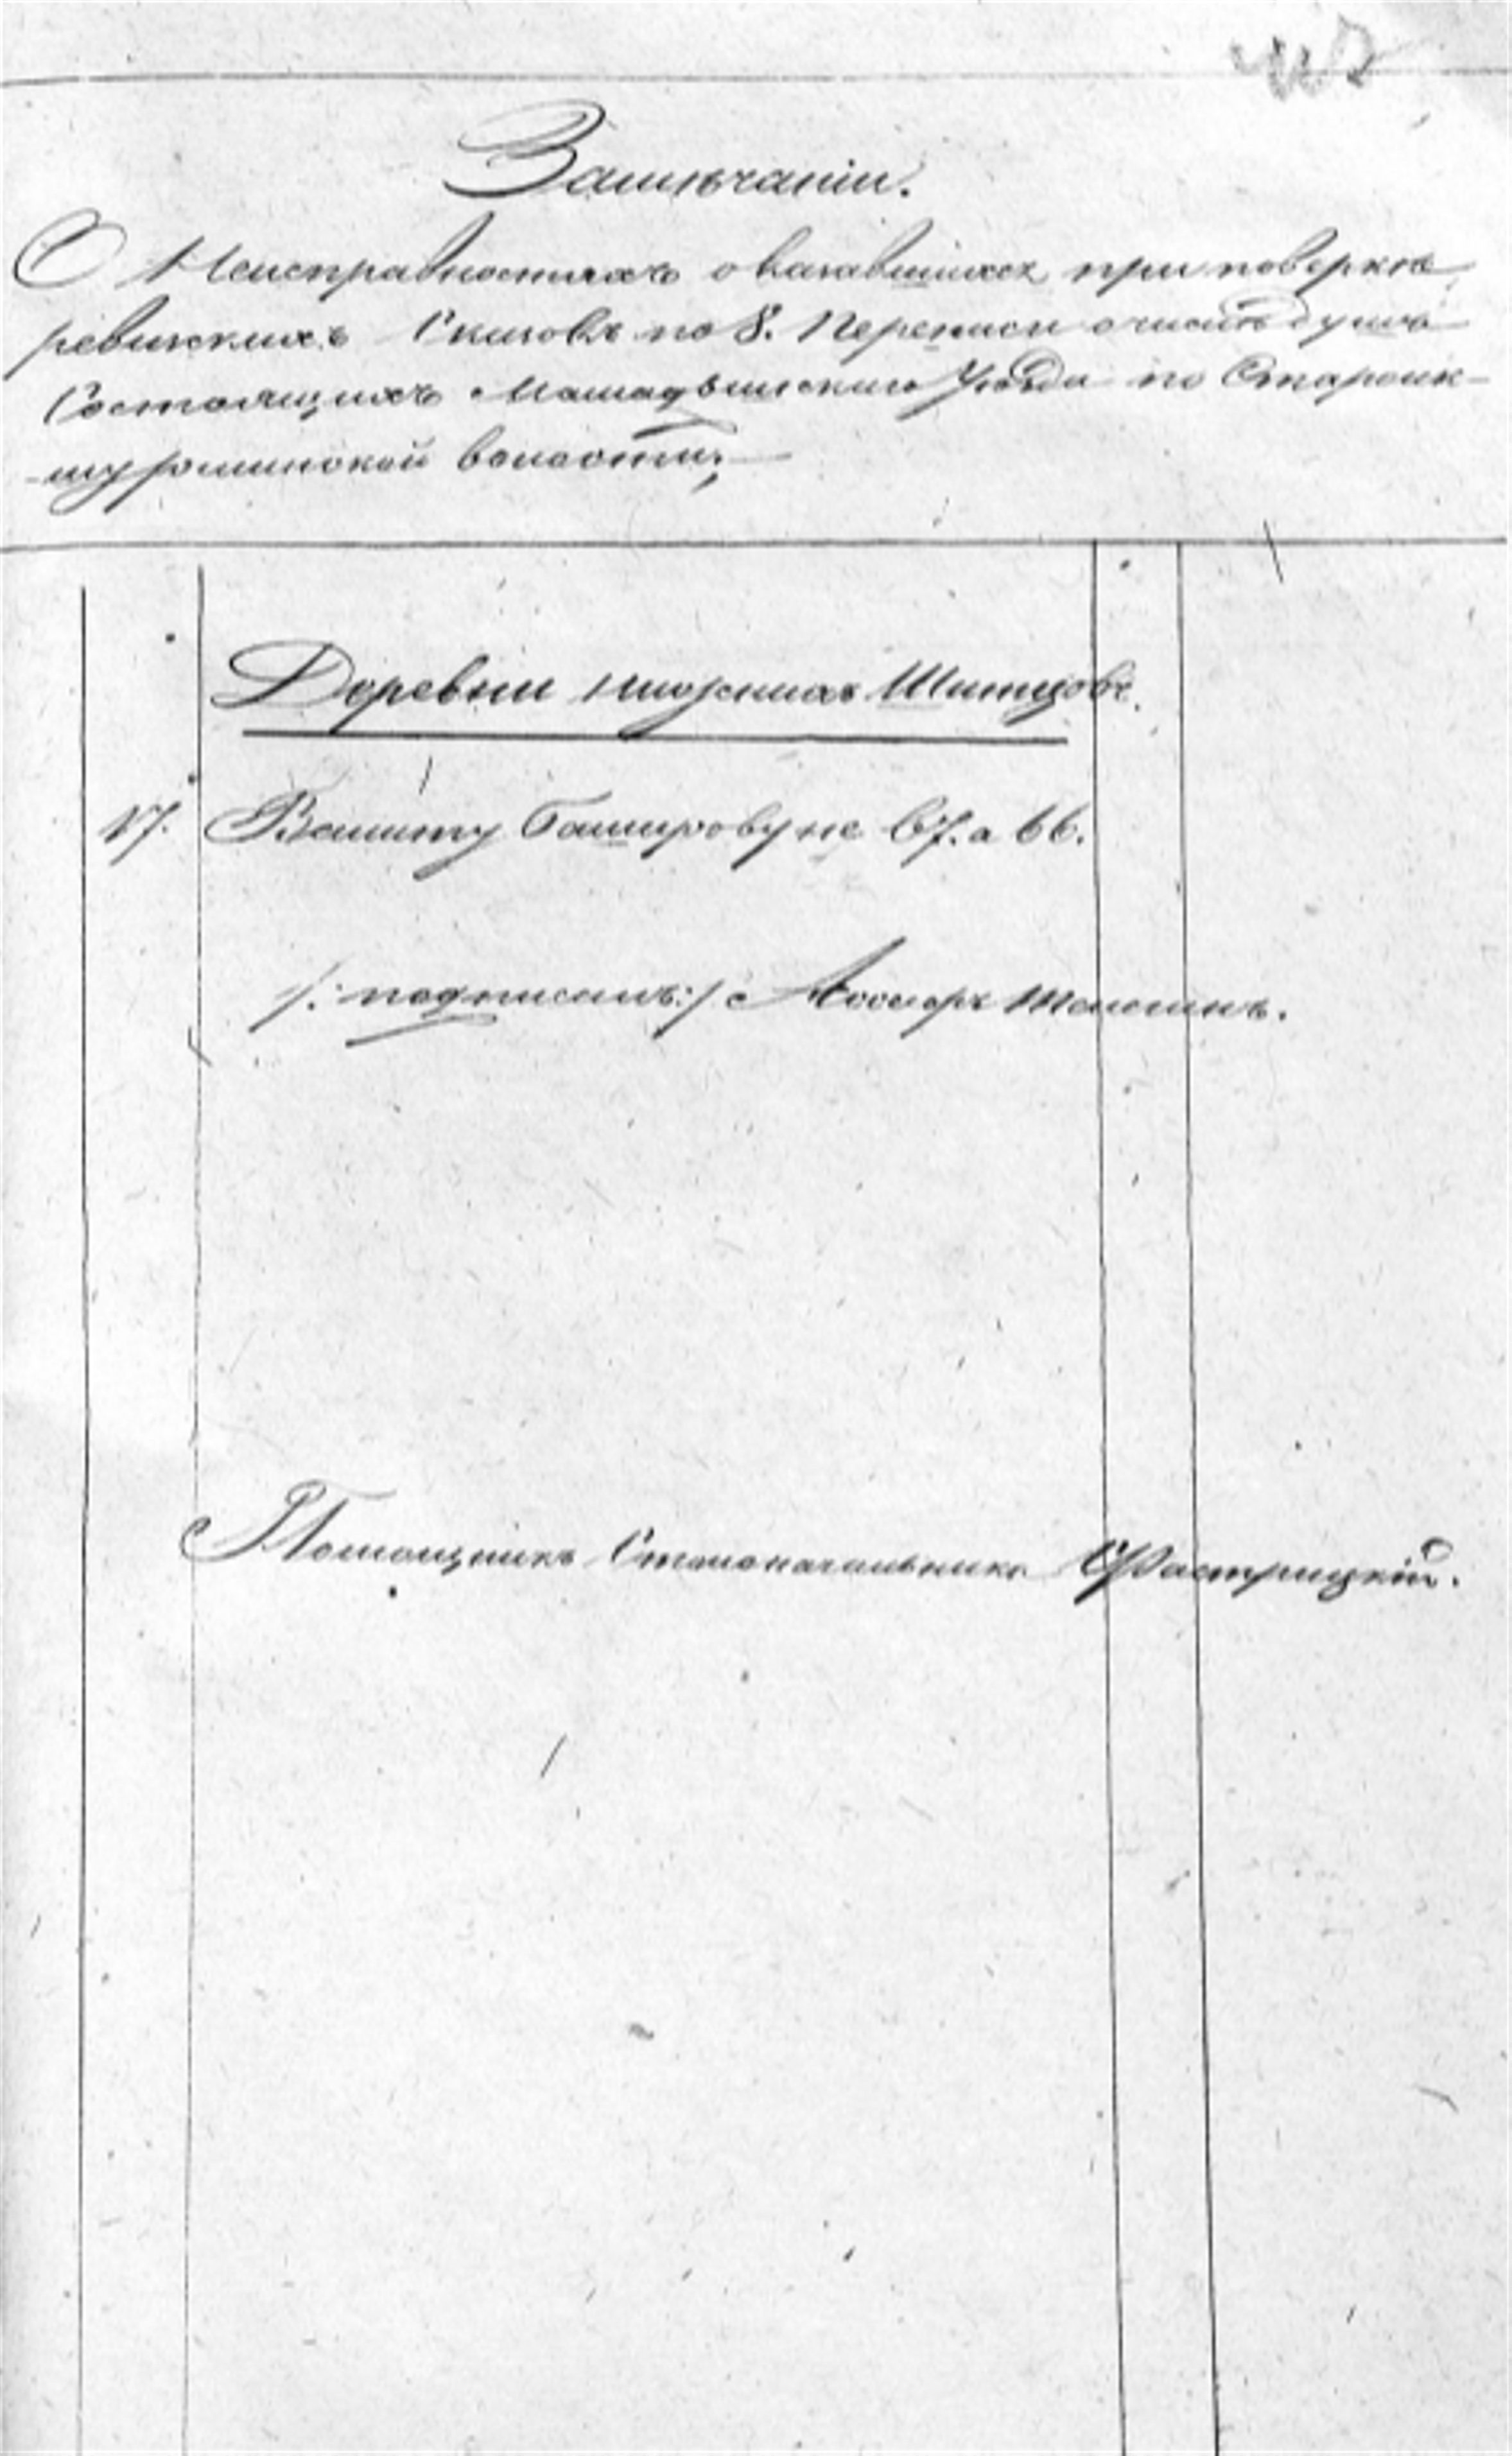 Замѣчаніи.
О Неисправностяхъ оказавшихся при поверкѣ
ревизскихъ Сказокъ по 8. Переписи о числѣ душъ
Состоящихъ Мамадышскаго Уѣзда по Староик-
-шурминской волости;
Деревни нижнихъ Шитцовъ.
17. Вашиту Баширову не 67. а 66.
/: подписалъ:/ Ассесоръ
Помощникъ Столоначальника